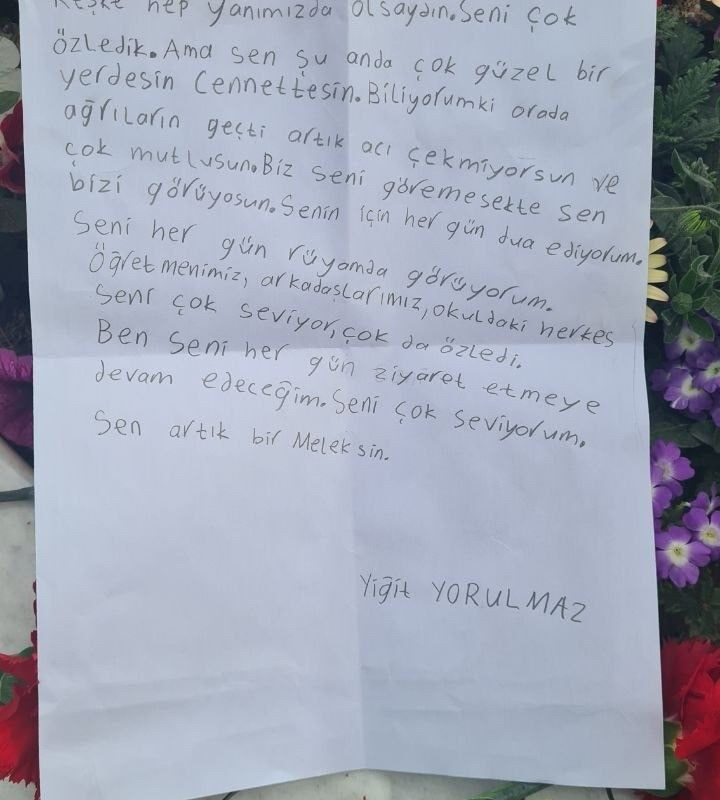 Keşke hep yanımızda olsaydın.Seni çok
özledik.Ama sen şu anda çok güzel bir
yerdesin Cennettesin.Biliyorumki orada
ağrıların geçti artık acı çekmiyorsun ve
çok mutlusun.Biz seni göremesekte sen
bizi görüyosun.Senin için her gün dua ediyorum.
Seni her gün rüyamda görüyorum.
Öğretmenimiz, arkadaşlarımız, okuldaki herkes
Seni çok seviyor, çok da özledi.
Ben Seni her gün ziyaret etmeye
devam edeceğim.Seni çok seviyorum.
Sen artık bir Meleksin.
Yiğit YORULMAZ